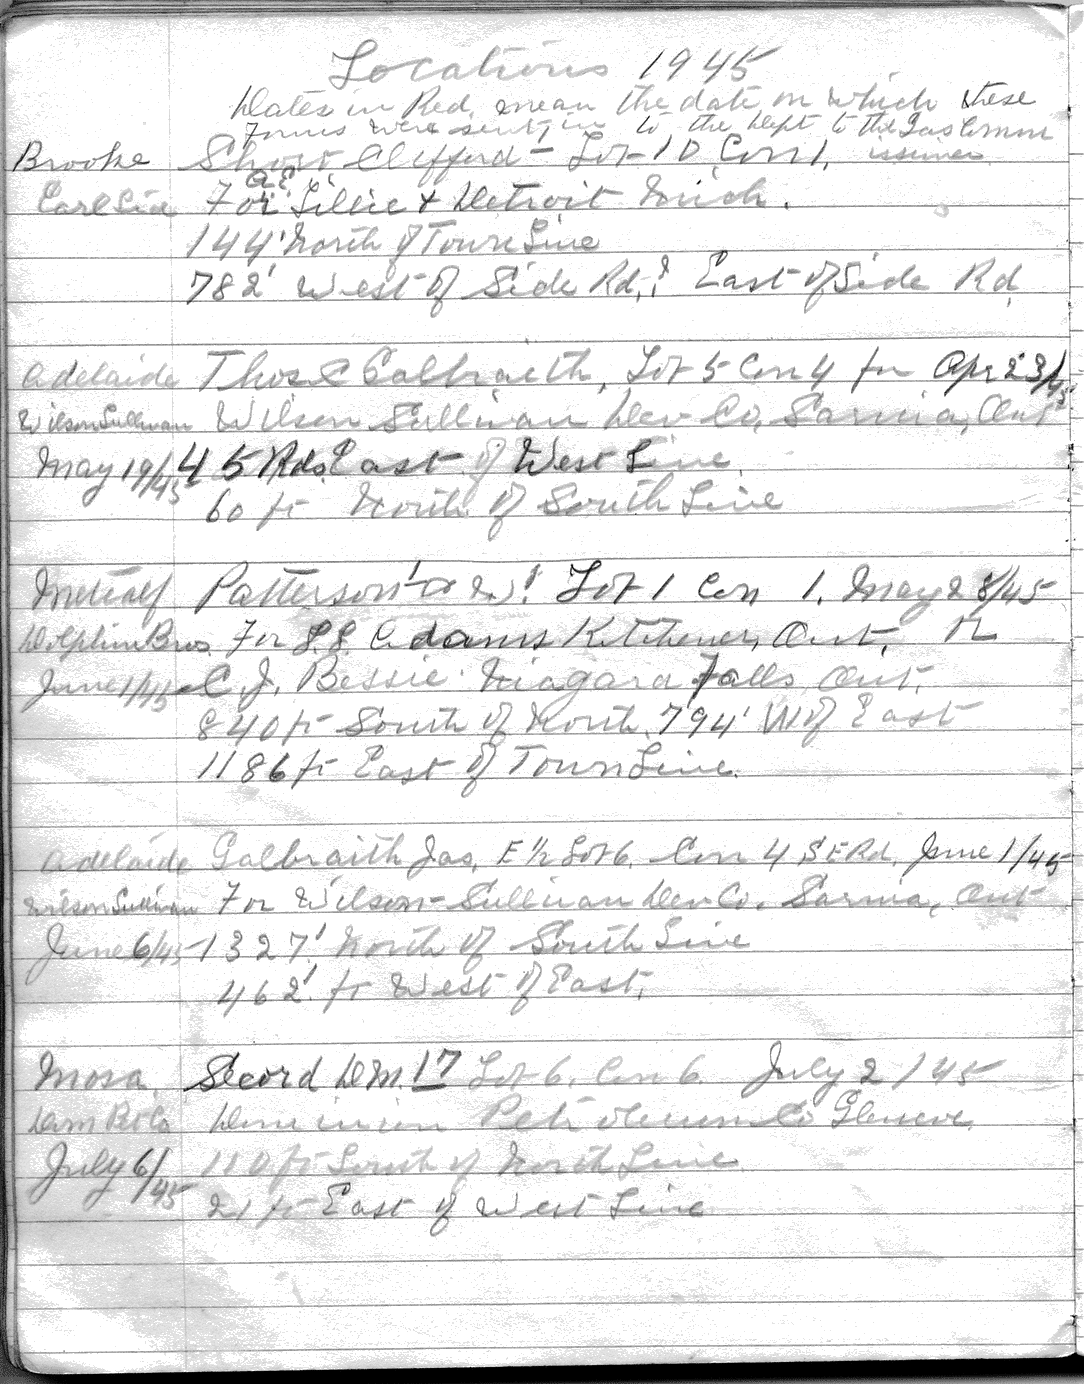 Locations 1945
Dates in Red mean the date on which these
Forms were sent in to the Dept to the Gas Comm
issioner
Brooke Short Clifford - Lot 10 Con 1,
A.E.
For Lillie & Detroit Mich.
144' North of Town Line
782' West of Side Rd, ? East of Side Rd,
Adelaide Thos C Galbraith, Lot 5 Con 4 for Apr 23/45
Wilson Sullivan Wilson Sullivan Dev Co, Sarnia, Ont
May 19/45 45 Rds East of West Line
60 ft North of South Line
Metcalf Patterson W. Lot 1 Con 1. May 28/45
Dolphin Bros For Adams Kitchener, Ont,
June 1/45 C. J. Bessie Niagara Falls Ont.
840 ft South of North 794' W of East
1186 ft East of Town Line.
Adelaide Galbraith Jas, E 1/2 Lot 6. Con 4 S E Rd, June 1/45
Wilson Sullivan For Wilson-Sullivan Dev Co. Sarnia, Ont
June 6/45 1327' North of South Line
462' ft West of East,
Mosa Secord DM. 17 Lot 6. Con 6. July 2/45
Dom Pet Co Dominion Petroleum Co Glencoe
July 6/45 110 ft South of North Line
21 ft East of West Line